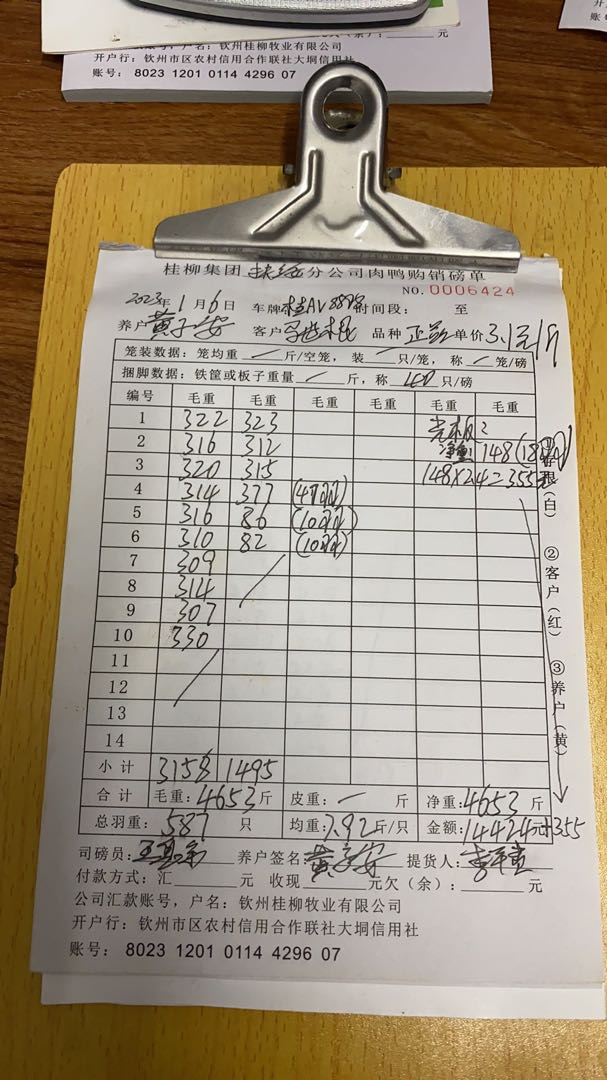 账(余):______元
司,户名:钦州桂柳牧业有限公司
开户行:钦州市区农村信用合作联社大垌信用社
账号: 8023 1201 0114 4296 07
桂柳集团 分公司肉鸭购销磅单
NO.0006424
2023年1月6日 车牌 时间段: 至
养户 客户 品种 正 单价3.1元/斤
笼装数据:笼均重 — 斤/空笼,装 — 只/笼,称 — 笼/磅
捆脚数据:铁筐或板子重量 — 斤,称 40 只/磅
编号 毛重 毛重 毛重 毛重 毛重 毛重
1 322 323
2 316 312 净重: 148(18
3 320 315 148×2.4=355
4 314 377 (47
5 316 86 (10
6 310 82 (10
7 309
8 314
9 307
10 330
11
12
13
14
小计 3158 1495
合计 毛重:4653斤 皮重:— 斤 净重:4653斤
总羽重:587 只 均重:7.92斤/只 金额:14424元+355
(白)
②客户(红)
③养户(黄)
司磅员: 养户签名: 提货人:
付款方式:汇______元 收现______元欠(余):______元
公司汇款账号,户名:钦州桂柳牧业有限公司
开户行:钦州市区农村信用合作联社大垌信用社
账号: 8023 1201 0114 4296 07